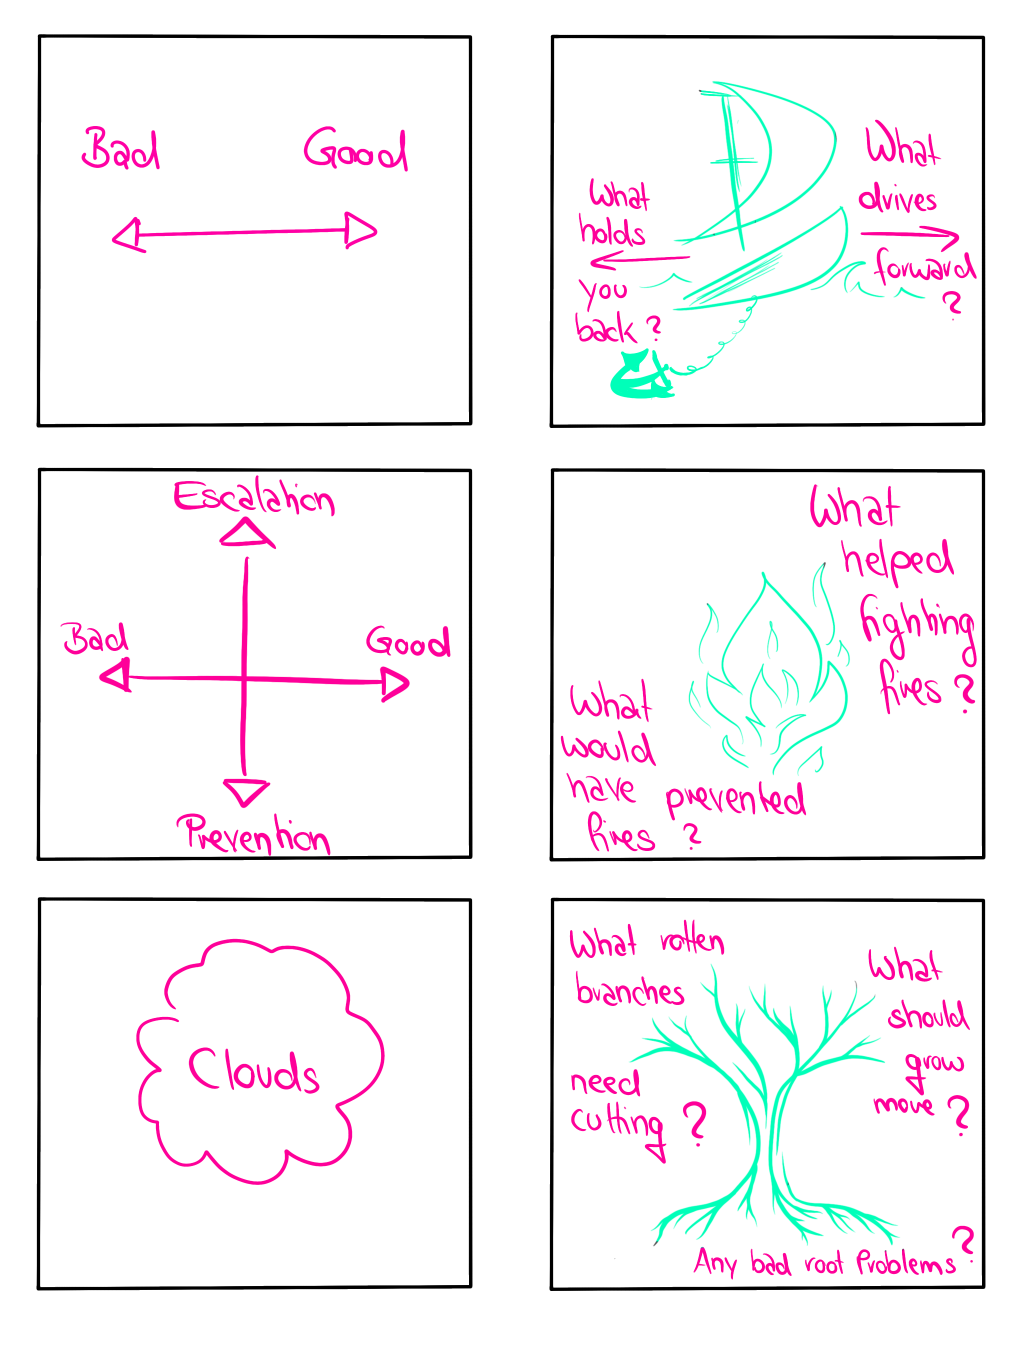 Bad Good
What
holds
you
back?
What
drives
forward
?
Escalation
Bad Good
Prevention
What
helped
fighting
fires?
What
would
have prevented
fires ?
Clouds
What rotten
branches
need
cutting ?
What
should
grow
move ?
Any bad root Problems ?